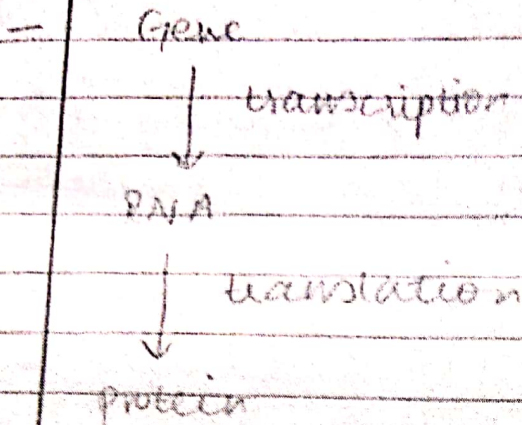 Gene
transcription
RNA
translation
protein